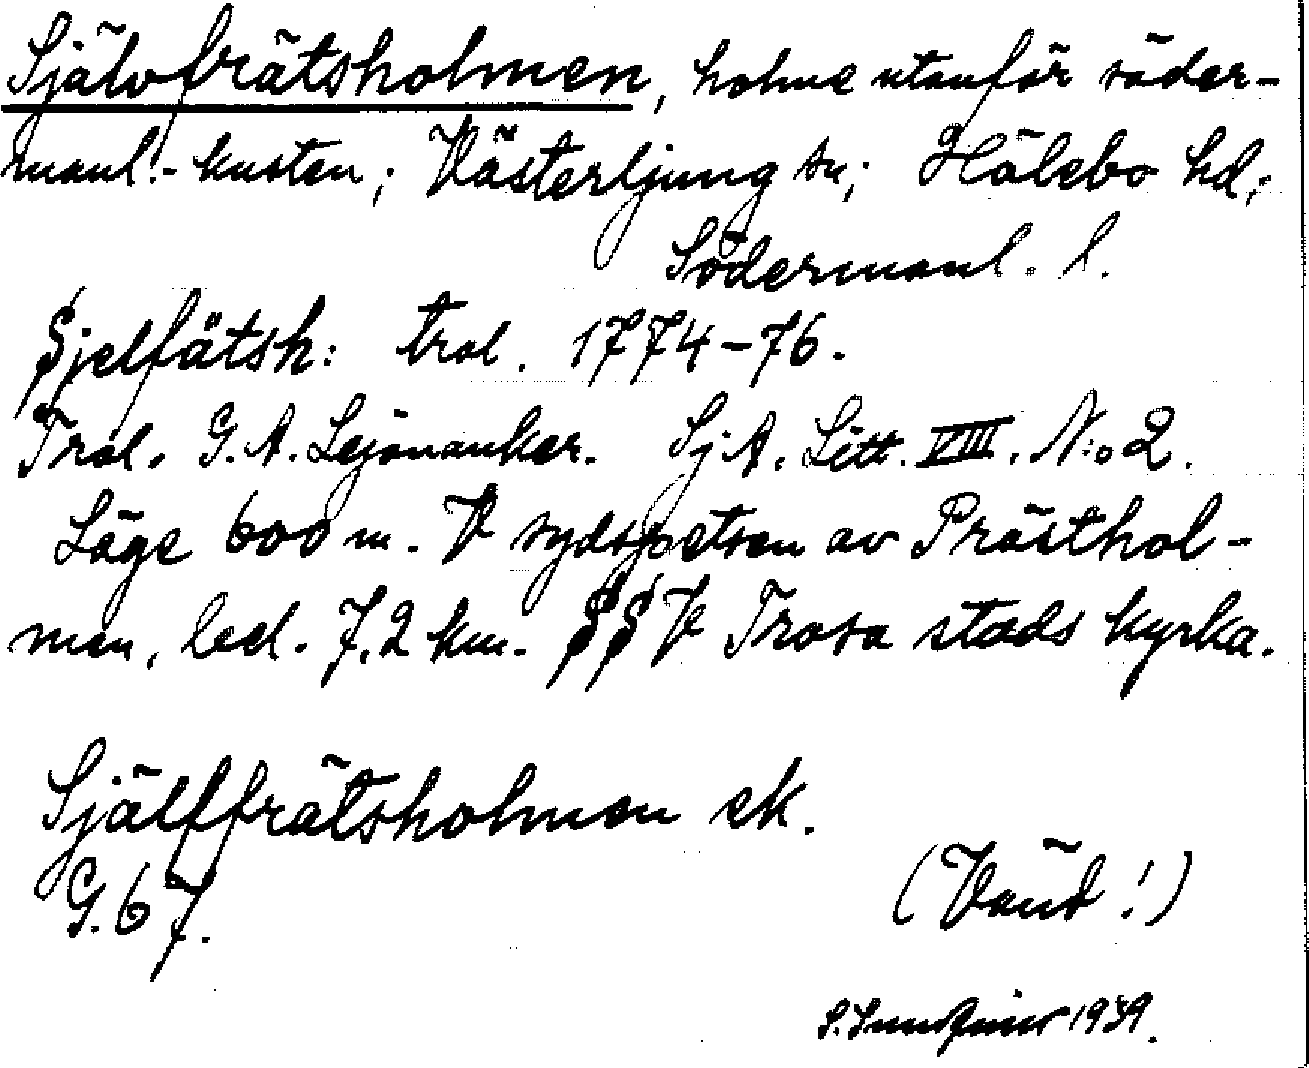 Självfrätsholmen, holme utanför söder-
manl.-kusten; Västerljung sn; Hölebo hd;
Södermanl. l.
Sjelfätsh: trol. 1774-76.
Trol. G. A. Lejonanker. Sj. A. Litt. VIII. N:o 2.
Läge 600 m. V sydspetsen av Prästhol-
men, bel. 7,2 km. SSV Trosa stads kyrka.
Självfrätsholmen ek.
G. 67.
(Vänd!)
S. 1939.